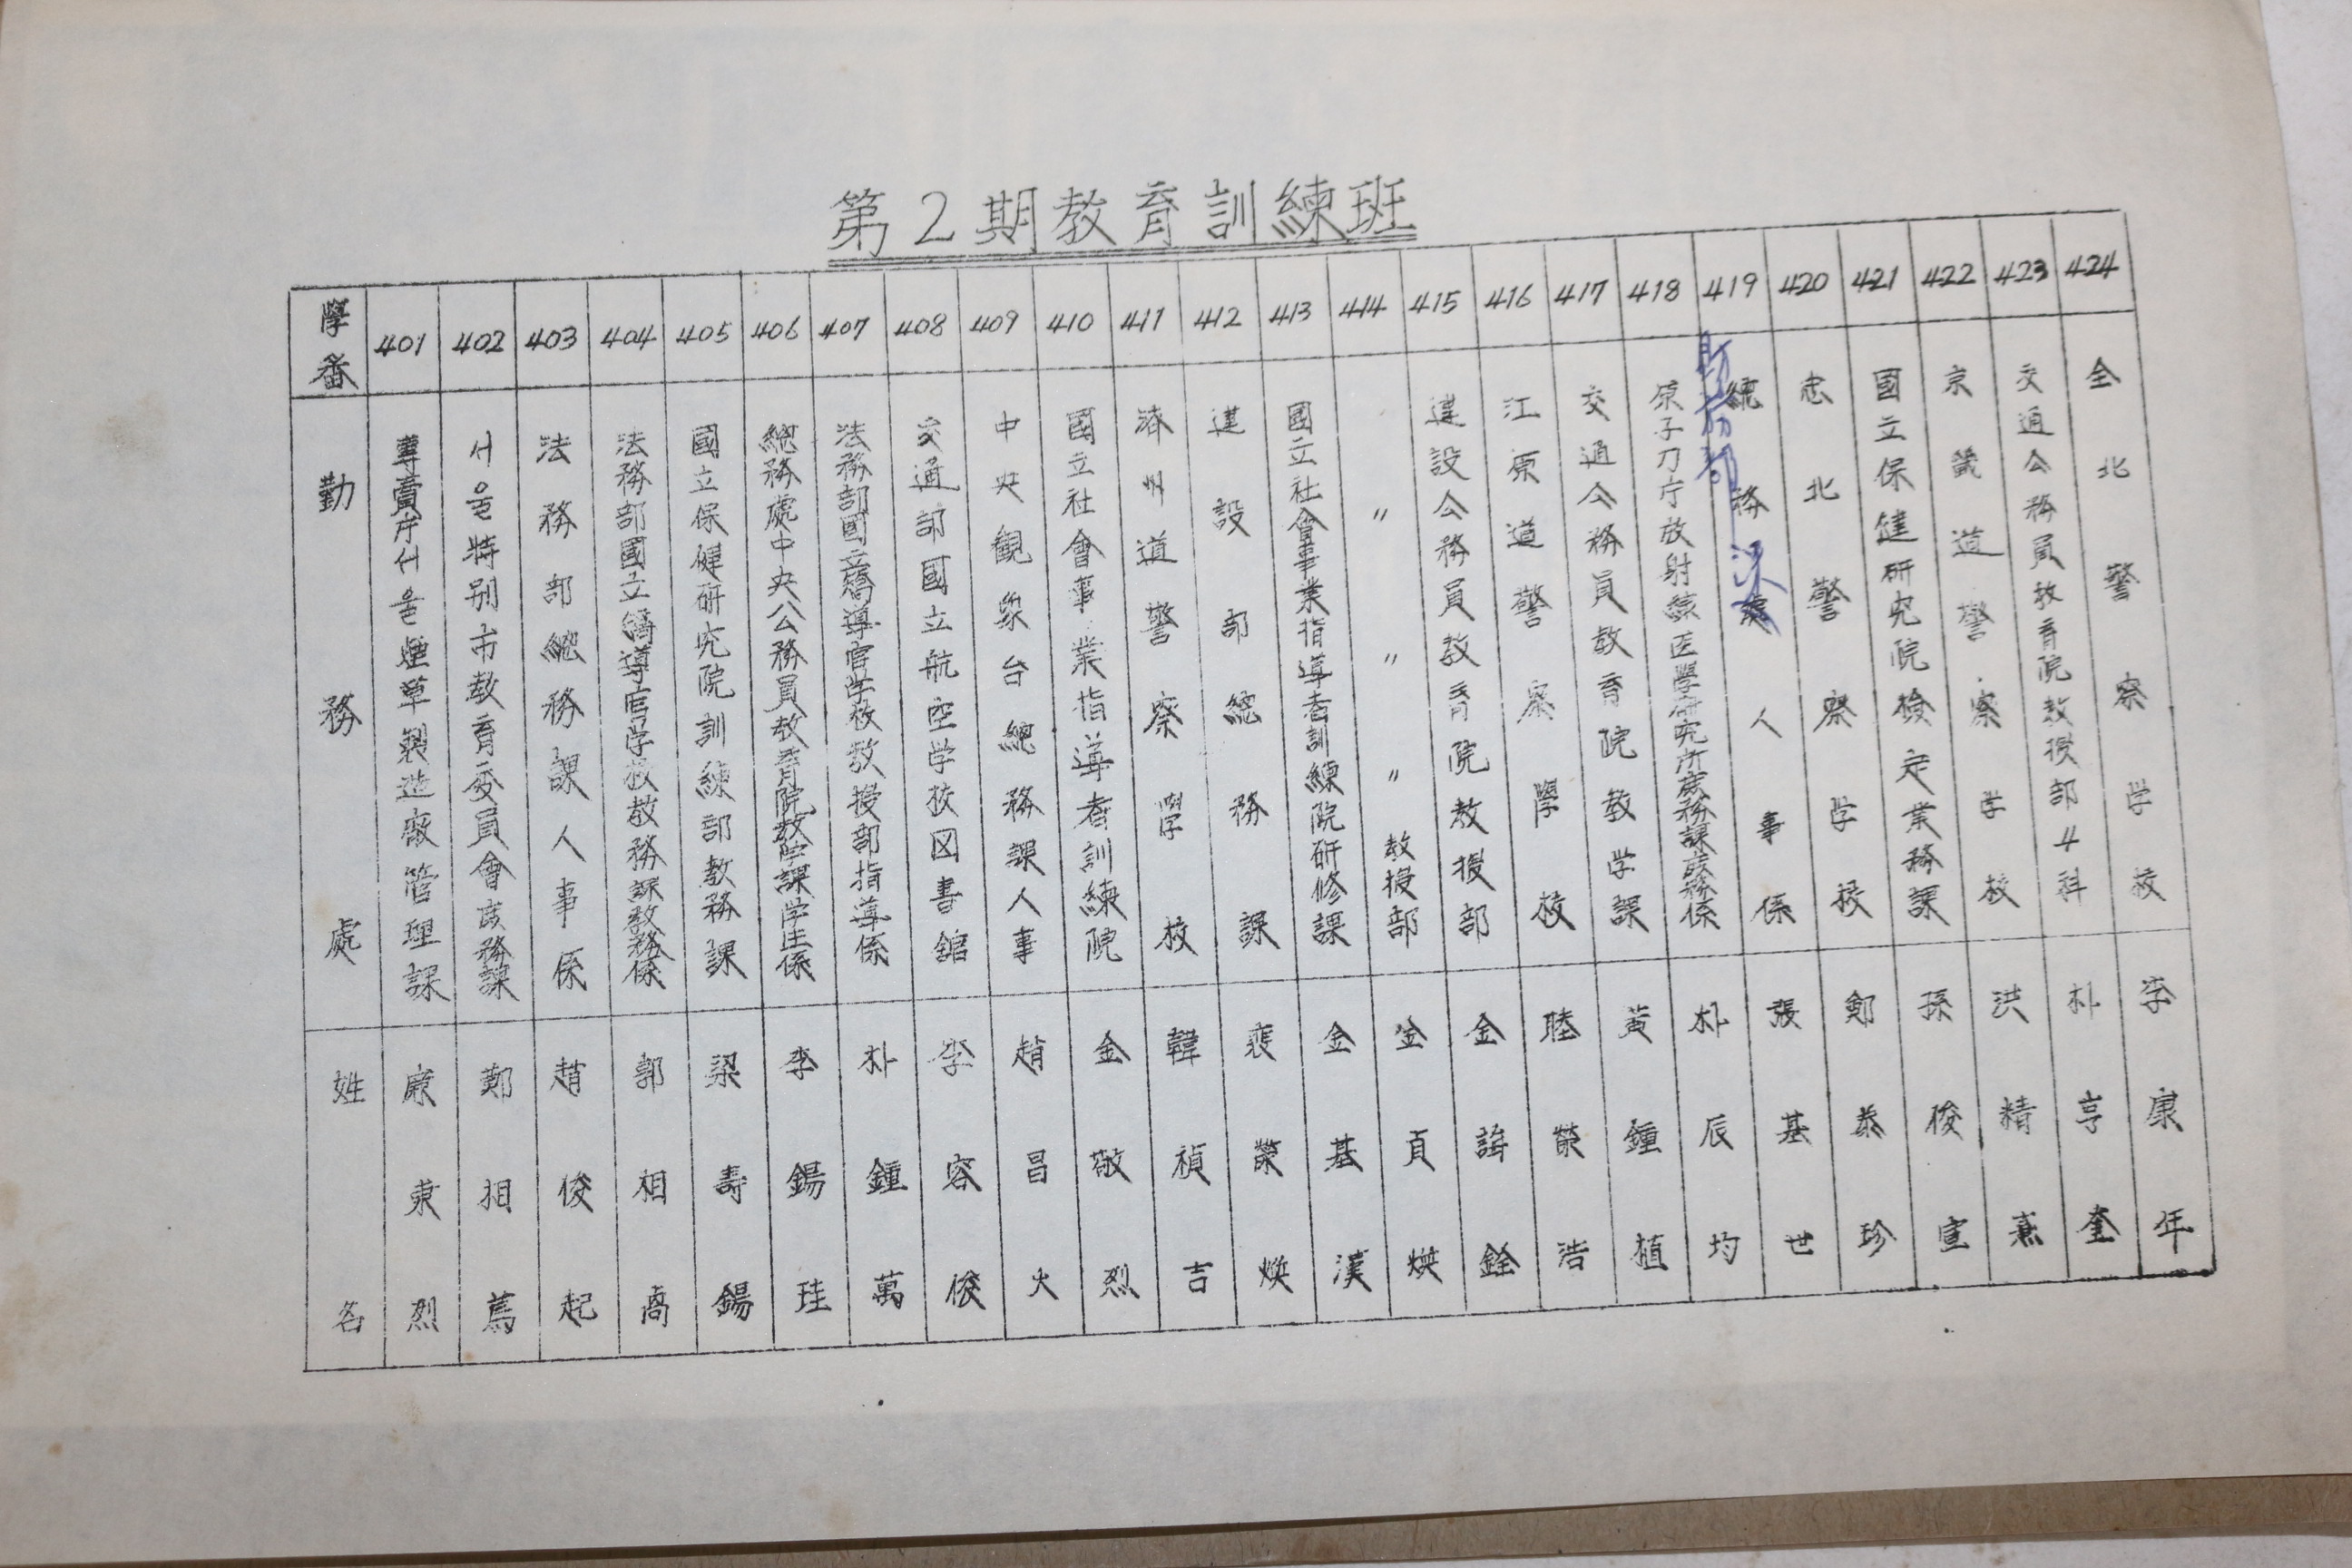 第2期教育訓練班
學番 勤務處 姓名
401 專賣庁서울煙草製造廠管理課 康東烈
402 서울特別市教育委員會庶務課 鄭相篤
403 法務部總務課人事係 趙俊起
404 法務部國立矯導官学校教務課教務係 郭相高
405 國立保健研究院訓練部教務課 梁壽錫
406 總務處中央公務員教育院教院課学生係 李錫珪
407 法務部國立矯導官学校教授部指導係 朴鍾萬
408 交通部國立航空学校図書舘 李容俊
409 中央観象台總務課人事 趙昌大
410 國立社會事業指導者訓練院 金敬烈
411 済州道警察學校 韓禎吉
412 建設部總務課 裵榮煥
413 國立社會事業指導者訓練院研修課 金基漢
414 〃 〃 〃 教授部 金貞煥
415 建設公務員教育院教授部 金銓
416 江原道警察學校 睦榮浩
417 交通公務員教育院教学課 黃鍾植
418 原子力庁放射線医學研究所庶務課庶務係 朴辰均
419 總務處人事係 張基世
財務部
420 忠北警察学校 鄭泰珍
421 國立保健研究院檢定業務課 孫俊宣
422 京畿道警察学校 洪精熹
423 交通公務員教育院教授部4科 朴亨奎
424 全北警察学校 李康年